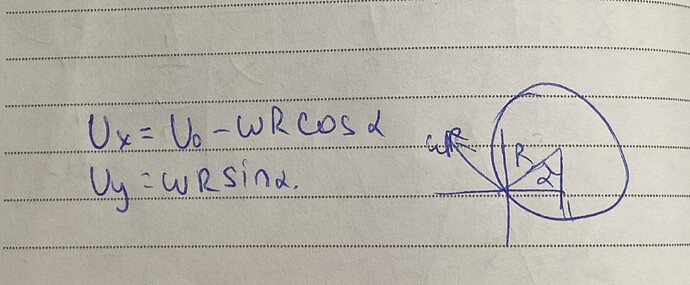 Ux = U0 - ωR cos α
Uy = ωR sin α.
ωR
R
α